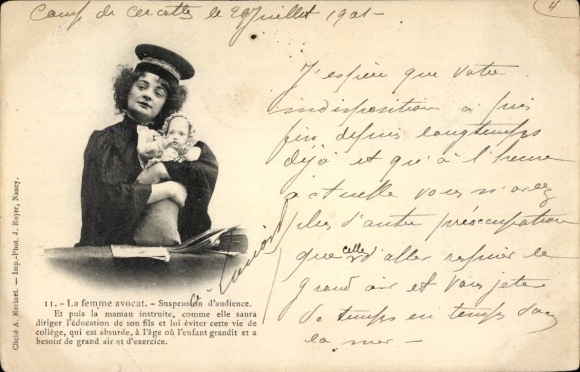 Camp de Cercottes le 29 Juillet 1901 -
4
J'espère que votre
indisposition a pris
fin depuis longtemps
déjà et qu'à l'heure
actuelle vous n'avez
plus d'autre préoccupation
que celle d'aller respirer le
grand air et vous jeter
de temps en temps dans
la mer -
11. - La femme avocat. - Suspension d'audience.
Et puis la maman instruite, comme elle saura
diriger l'éducation de son fils et lui éviter cette vie de
collège, qui est absurde, à l'âge où l'enfant grandit et a
besoin de grand air et d'exercice.
Cliché A. Morinet. - Imp.-Phot. J. Royer, Nancy.